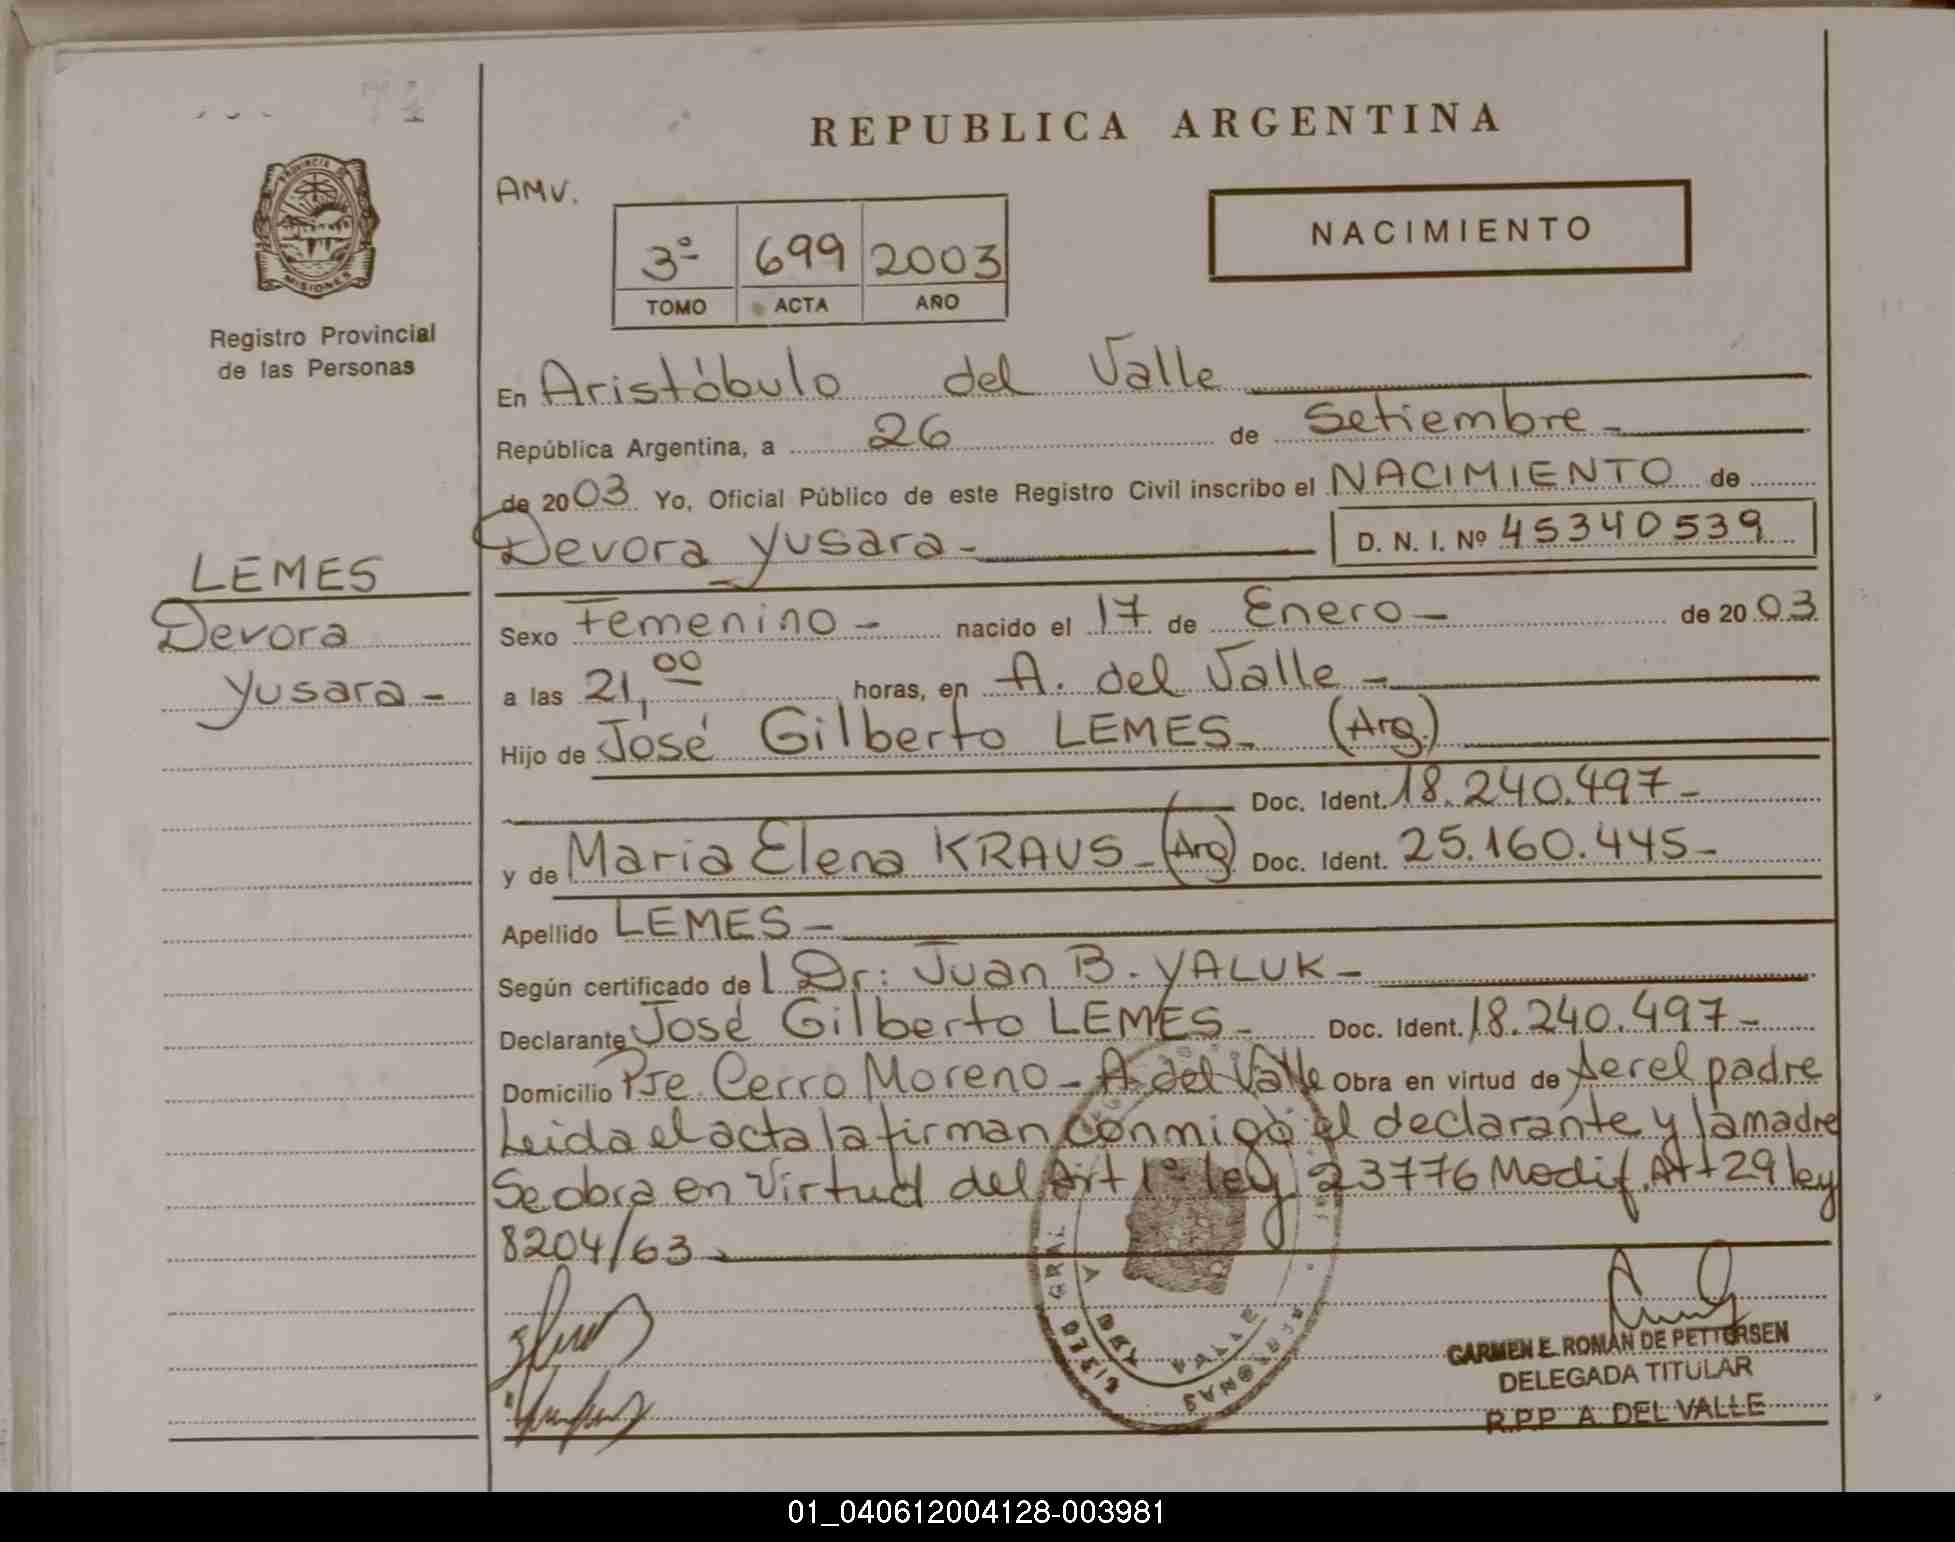 REPUBLICA ARGENTINA
AMV.
3º 699 2003
TOMO ACTA AÑO
NACIMIENTO
PROVINCIA DE
MISIONES
Registro Provincial
de las Personas
LEMES
Devora
Yusara -
En Aristóbulo del Valle
República Argentina, a 26 de Setiembre -
de 2003 Yo, Oficial Público de este Registro Civil inscribo el NACIMIENTO de
Devora Yusara - D. N. I. Nº 45340539
Sexo Femenino - nacido el 17 de Enero - de 2003
a las 21,00 horas, en A. del Valle -
Hijo de José Gilberto LEMES - (Arg.)
Doc. Ident. 18.240.497 -
y de Maria Elena KRAUS - (Arg) Doc. Ident. 25.160.445 -
Apellido LEMES -
Según certificado de l Dr: Juan B. YALUK -
Declarante José Gilberto LEMES - Doc. Ident. 18.240.497 -
Domicilio Pje. Cerro Moreno - A. del Valle Obra en virtud de ser el padre
Leida el acta la firman conmigo el declarante y la madre
Se obra en Virtud del Art 1º ley 23776 Modif. Art 29 ley
8204/63 -
CARMEN E. ROMAN DE PETTERSEN
DELEGADA TITULAR
R.P.P. A. DEL VALLE
01_040612004128-003981